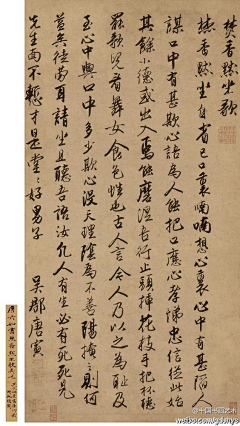 焚香默坐歌
焚香默坐自省己口裏喃喃想心裏心中有甚陷人
謀口中有甚欺心語為人能把口應心孝悌忠信從此始
其餘小德或出入焉能磨涅吾行止頭揷花枝手把杯聽
罷歌兒看舞女食色性也古人言今人乃以之為恥及
至心中與口中多少欺心沒天理陰為不善陽揜之則何
益矣徒勞耳請坐且聽吾語汝凡人有生必有死死見
先生面不慙才是堂堂好男子
吳郡唐寅
@中国书画艺术